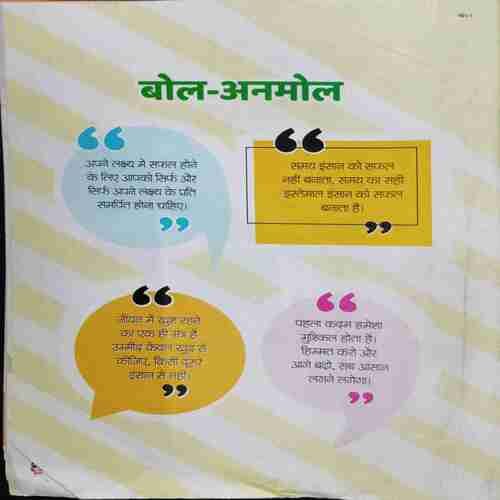 बोल-अनमोल
अपने लक्ष्य में सफल होने
के लिए आपको सिर्फ और
सिर्फ अपने लक्ष्य के प्रति
समर्पित होना चाहिए।
समय इंसान को सफल
नहीं बनाता, समय का सही
इस्तेमाल इंसान को सफल
बनाता है।
जीवन में खुश रहने
का एक ही मंत्र है
उम्मीद केवल खुद से
कीजिए, किसी दूसरे
इंसान से नहीं।
पहला कदम हमेशा
मुश्किल होता है।
हिम्मत करो और
आगे बढ़ो, सब आसान
लगने लगेगा।